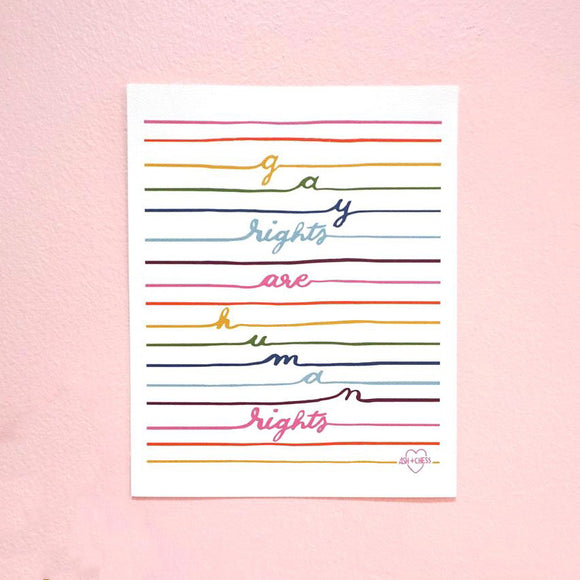 g
a
y
rights
are
h
u
m
a
n
rights
ASH + CHESS